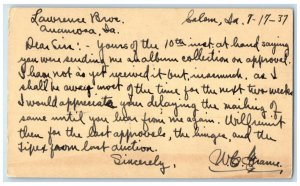 Lawrence Bros.
Anamosa, Ia.
Salem, Ia. 7-17-37
Dear Sirs:- Yours of the 10th inst. at hand saying
you were sending me an album collection on approval.
I have not as yet received it but, inasmuch, as I
shall be away most of the time for the next two weeks
I would appreciate your delaying the mailing of
same until you hear from me again. Will remit
then for the last approvals, the hinges, and the
from last auction.
Sincerely,
W.C.